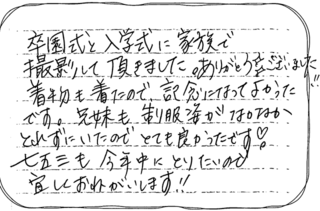 卒園式と入学式に家族で
撮影して頂きました。ありがとうございました!!
着物も着たので、記念になってよかった
です。兄妹も制服姿がなかなか
とれずにいたのでとても良かったです♡
七五三も今年中にとりたいので
宜しくおねがいします!!